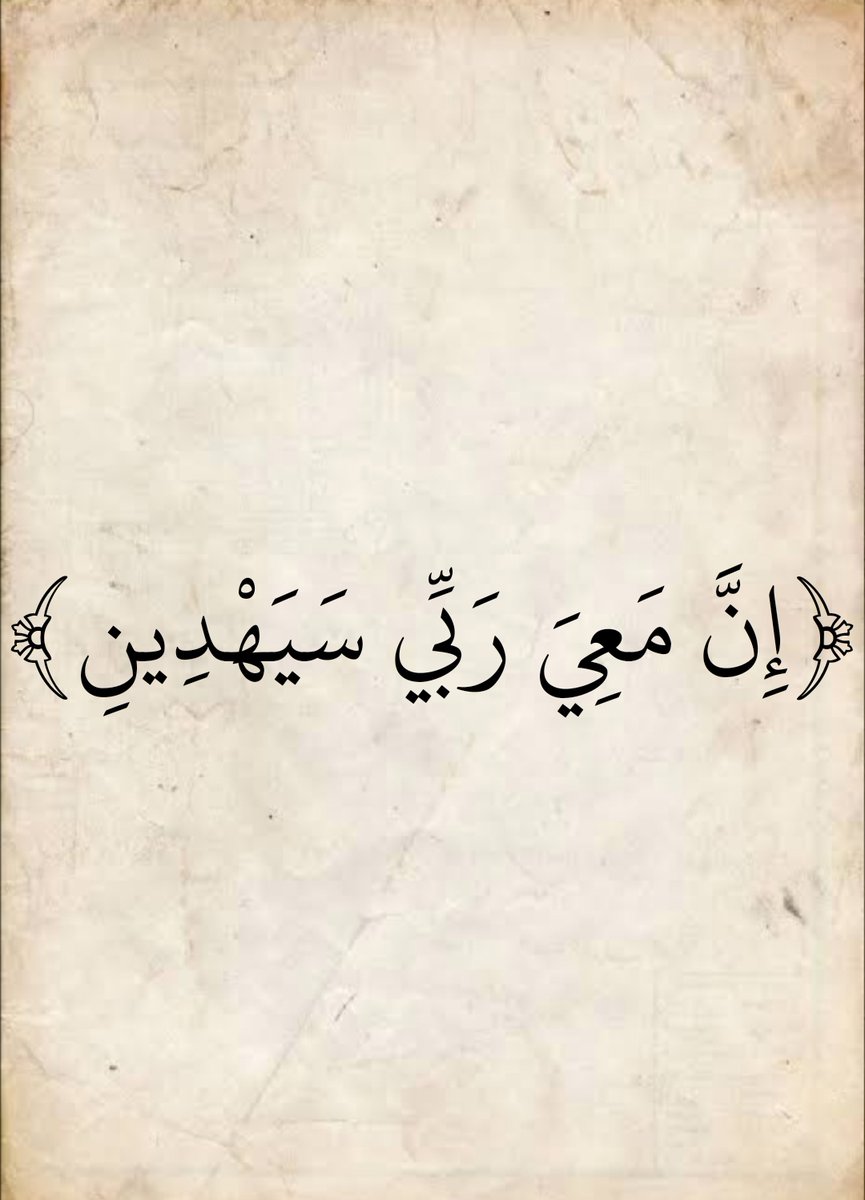 ﴿إِنَّ مَعِيَ رَبِّي سَيَهْدِينِ﴾